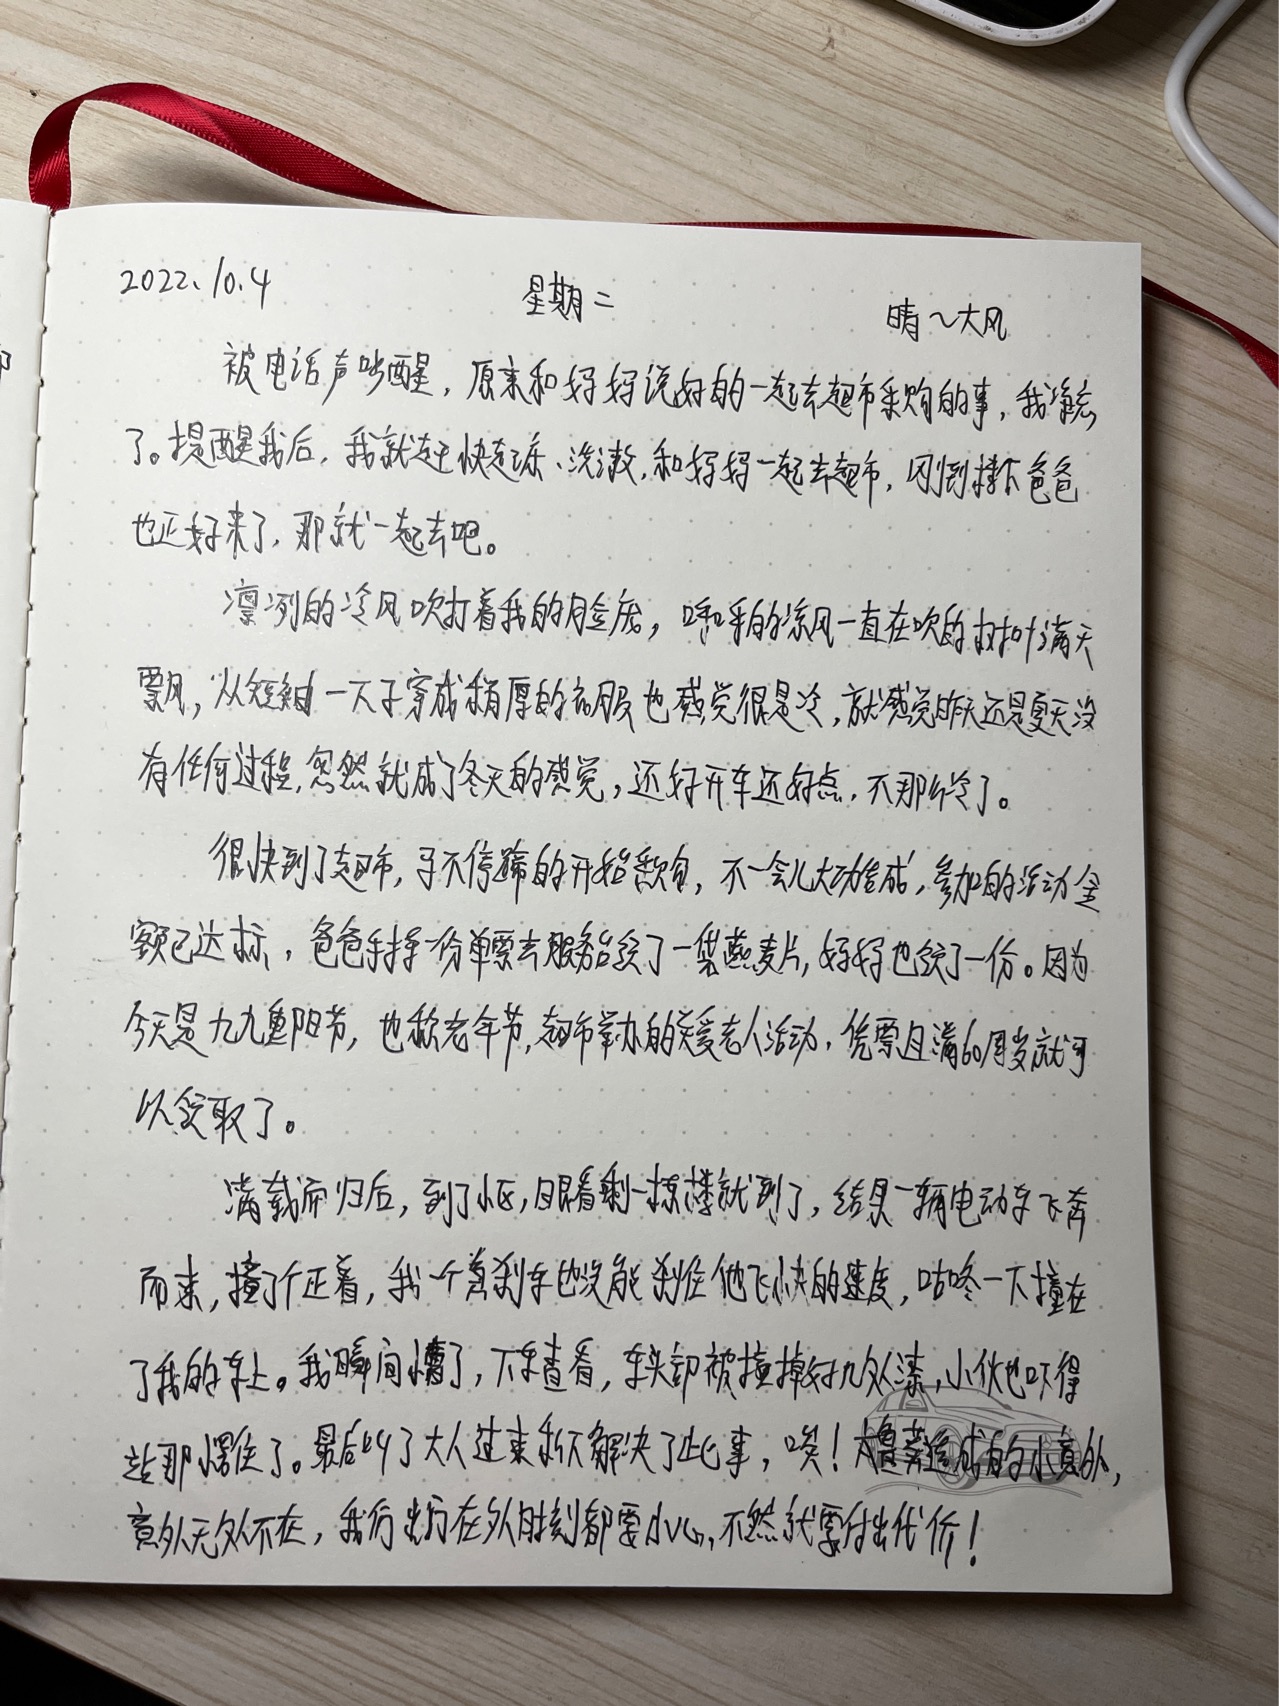 2022.10.4 星期二 晴~大风
被电话声吵醒，原来和妈妈说好的一起去超市采购的事，我给忘
了。提醒我后，我就赶快起床、洗漱，和妈妈一起去超市，刚到楼下爸爸
也正好来了，那就一起去吧。
凛冽的冷风吹打着我的脸庞，呼呼的凉风一直在吹的树叶满天
飘，从短袖一下子穿成稍厚的衣服也感觉很是冷，就感觉昨天还是夏天没
有任何过程，忽然就成了冬天的感觉，还好开车还好点，不那么冷了。
很快到了超市，马不停蹄的开始采购，不一会儿大功告成，参加的活动金
额已达标，爸爸手拿一份单票去服务台领了一袋燕麦片，妈妈也领了一份。因为
今天是九九重阳节，也称老年节，超市举办的关爱老人活动，凭票且满60周岁就可
以领取了。
满载而归后，到了小区，眼看剩一栋楼就到了，结果一辆电动车飞奔
而来，撞了个正着，我一个急刹车也没能刹住他飞快的速度，咕咚一下撞在
了我的车上。我瞬间懵了，下车查看，车头部被撞掉好几处漆，小伙也吓得
站那愣住了。最后叫了大人过来私下解决了此事，唉！太鲁莽造成的小意外，
意外无处不在，我们出行在外时刻都要小心，不然就要付出代价！